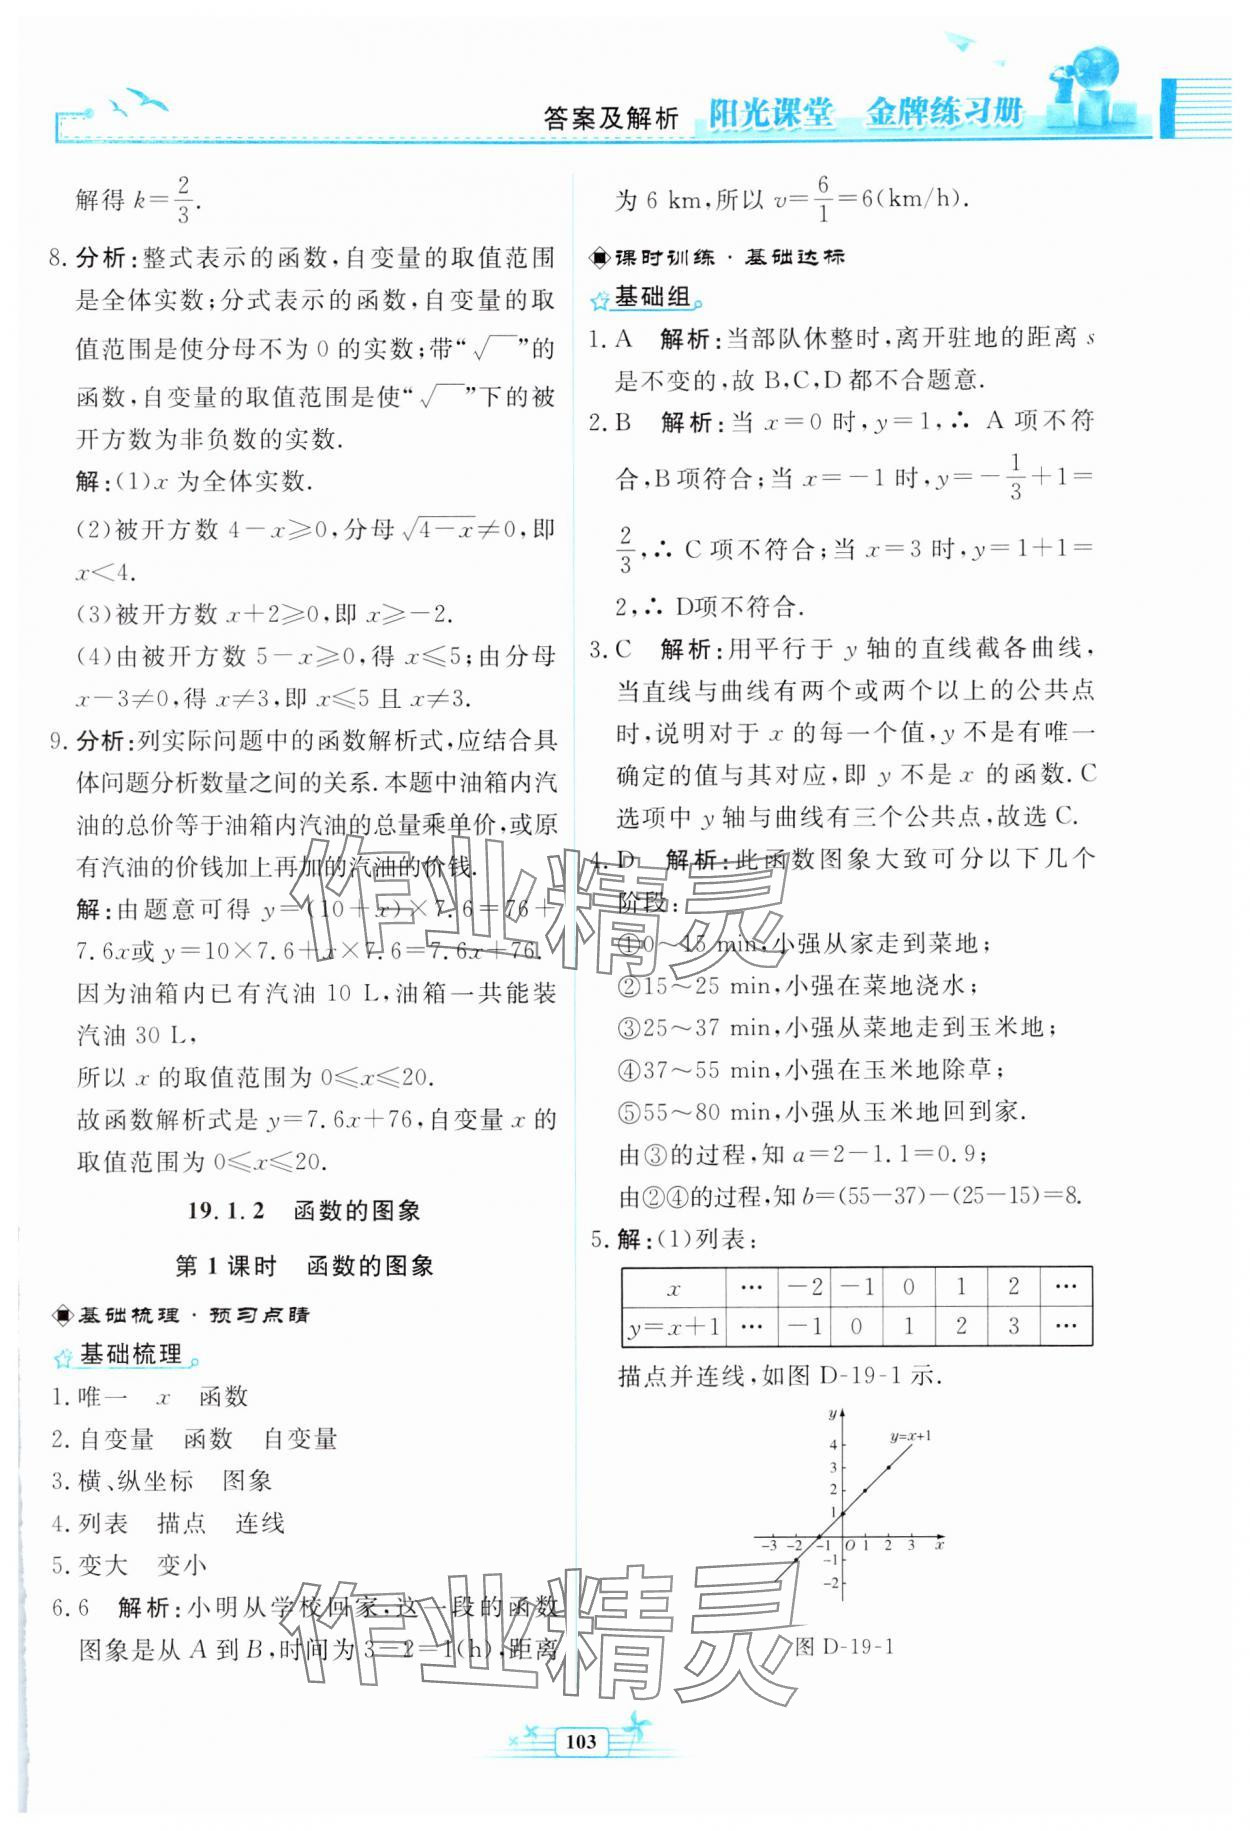 答案及解析 阳光课堂 金牌练习册
解得 k=2/3.
8. 分析:整式表示的函数,自变量的取值范围
是全体实数;分式表示的函数,自变量的取
值范围是使分母不为 0 的实数;带“√ ”的
函数,自变量的取值范围是使“√ ”下的被
开方数为非负数的实数.
解:(1)x 为全体实数.
(2)被开方数 4-x≥0,分母√(4-x)≠0,即
x<4.
(3)被开方数 x+2≥0,即 x≥-2.
(4)由被开方数 5-x≥0,得 x≤5;由分母
x-3≠0,得 x≠3,即 x≤5 且 x≠3.
9. 分析:列实际问题中的函数解析式,应结合具
体问题分析数量之间的关系.本题中油箱内汽
油的总价等于油箱内汽油的总量乘单价,或原
有汽油的价钱加上再加的汽油的价钱.
解:由题意可得 y=(10+x)×7.6=76+
7.6x或 y=10×7.6+x×7.6=7.6x+76.
因为油箱内已有汽油 10 L,油箱一共能装
汽油 30 L,
所以 x 的取值范围为 0≤x≤20.
故函数解析式是 y=7.6x+76,自变量 x 的
取值范围为 0≤x≤20.
19.1.2 函数的图象
第 1 课时 函数的图象
基础梳理·预习点睛
基础梳理
1. 唯一 x 函数
2. 自变量 函数 自变量
3. 横、纵坐标 图象
4. 列表 描点 连线
5. 变大 变小
6. 6 解析:小明从学校回家,这一段的函数
图象是从 A 到 B,时间为 3-2=1(h),距离
为 6 km,所以 v=6/1=6(km/h).
课时训练·基础达标
基础组
1. A 解析:当部队休整时,离开驻地的距离 s
是不变的,故 B,C,D 都不合题意.
2. B 解析:当 x=0 时,y=1,∴ A 项不符
合,B 项符合;当 x=-1 时,y=-1/3+1=
2/3,∴ C 项不符合;当 x=3 时,y=1+1=
2,∴ D项不符合.
3. C 解析:用平行于 y 轴的直线截各曲线,
当直线与曲线有两个或两个以上的公共点
时,说明对于 x 的每一个值,y 不是有唯一
确定的值与其对应,即 y 不是 x 的函数.C
选项中 y 轴与曲线有三个公共点,故选 C.
4. D 解析:此函数图象大致可分以下几个
阶段:
①0～15 min,小强从家走到菜地;
②15～25 min,小强在菜地浇水;
③25～37 min,小强从菜地走到玉米地;
④37～55 min,小强在玉米地除草;
⑤55～80 min,小强从玉米地回到家.
由③的过程,知 a=2-1.1=0.9;
由②④的过程,知 b=(55-37)-(25-15)=8.
5. 解:(1)列表:
x … -2 -1 0 1 2 …
y=x+1 … -1 0 1 2 3 …
描点并连线,如图 D-19-1 示.
y
y=x+1
4
3
2
1
-3 -2 -1 O 1 2 3 x
-1
-2
图 D-19-1
作业精灵
作业精灵
103